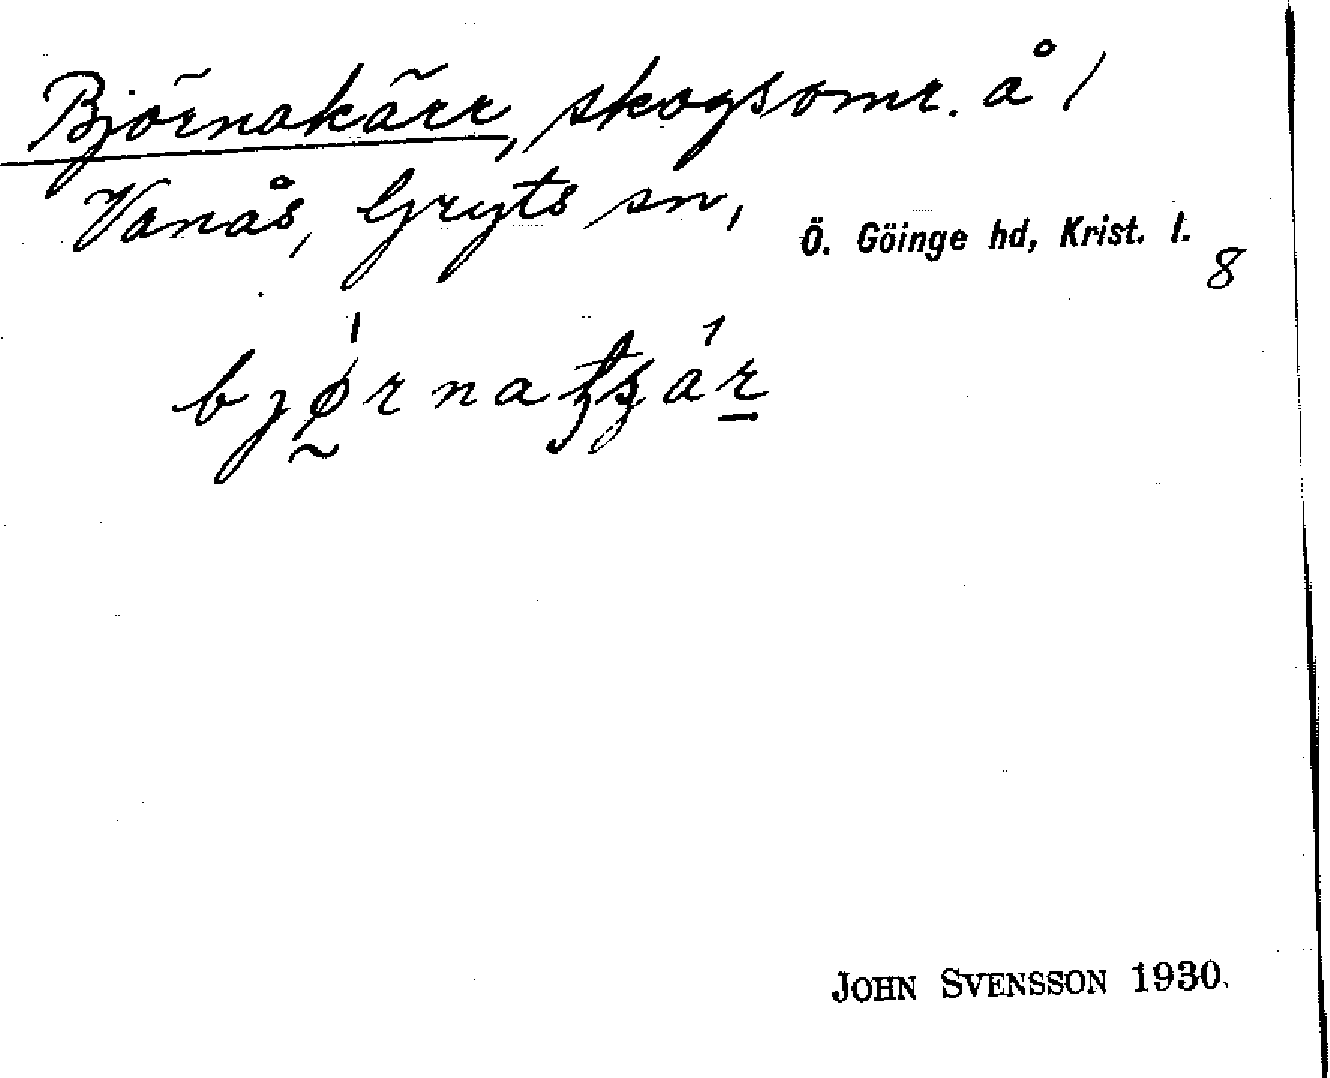 Björnakärr, skogsomr. å 1
Vanås, Gryts sn, Ö. Göinge hd, Krist. l. 8
JOHN SVENSSON 1930.